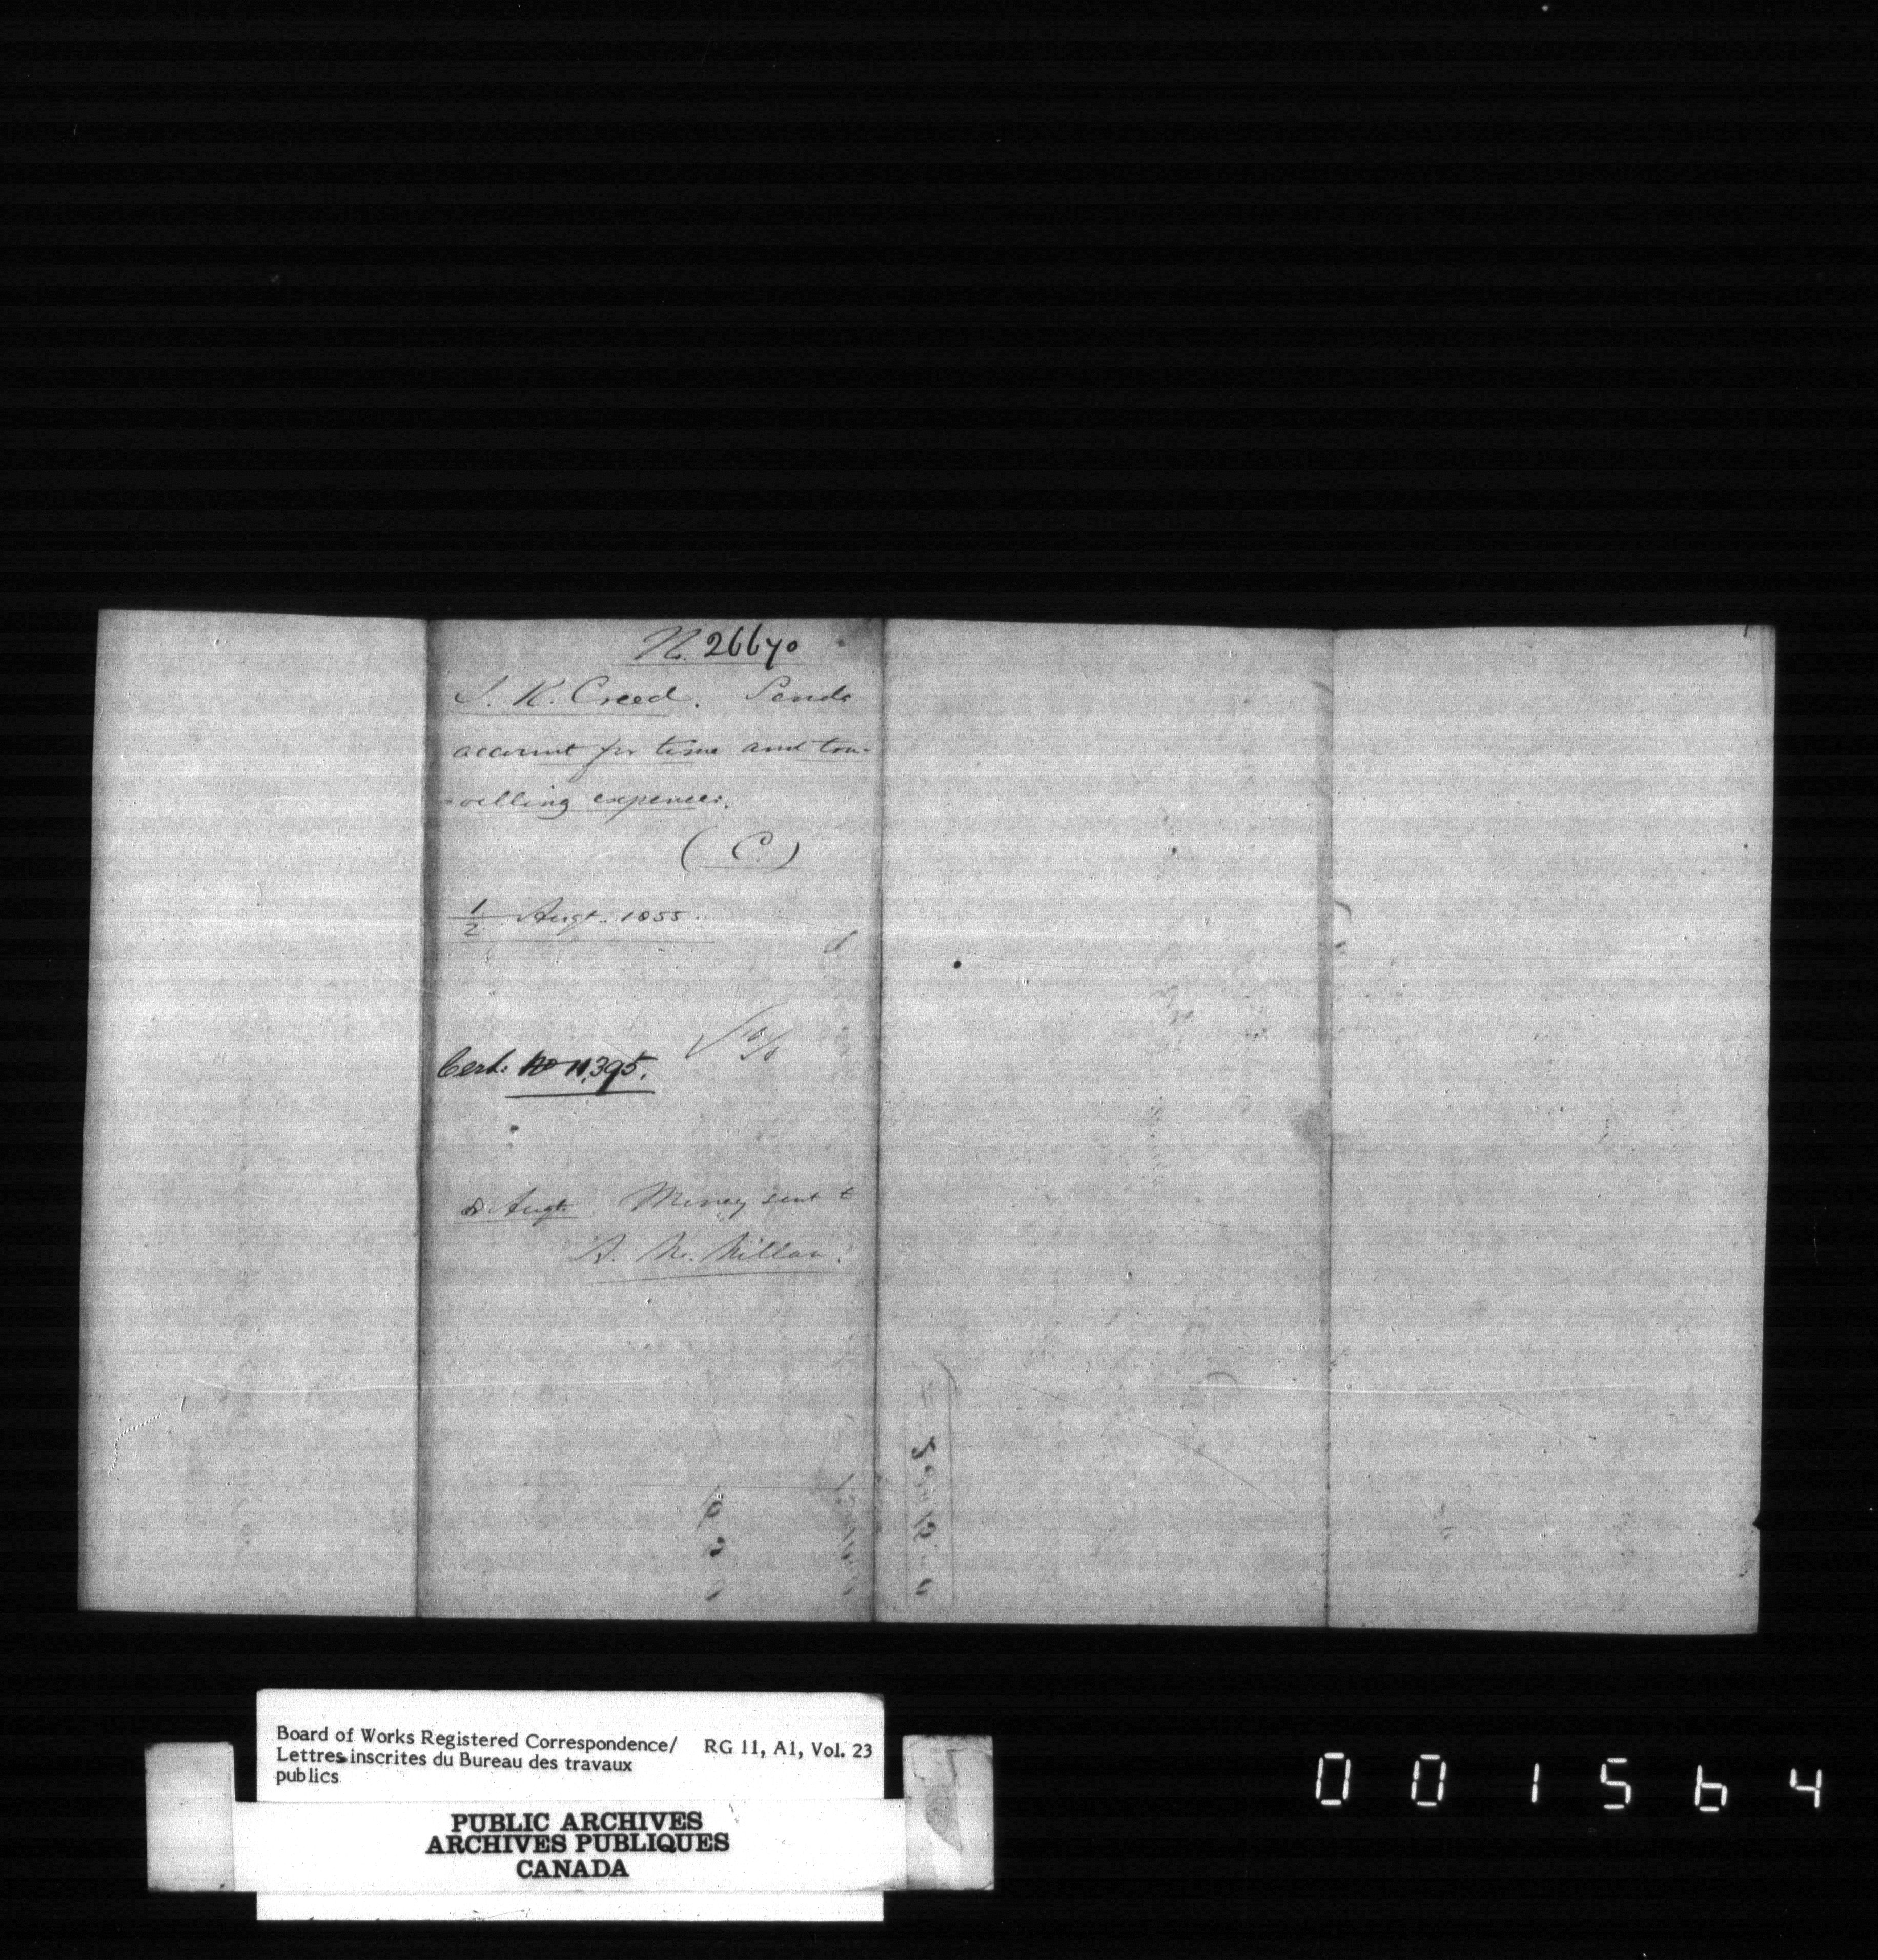 N. 26670
S. K. Creed. Sends
account for time and tra-
-velling expenses.
(C.)
1/2 Augt. 1855.
Cert: No 11,395.
8 Augt. Money sent to
A. McMillan.
Board of Works Registered Correspondence/ RG 11, A1, Vol. 23
Lettres inscrites du Bureau des travaux
publics
PUBLIC ARCHIVES
ARCHIVES PUBLIQUES
CANADA
001564